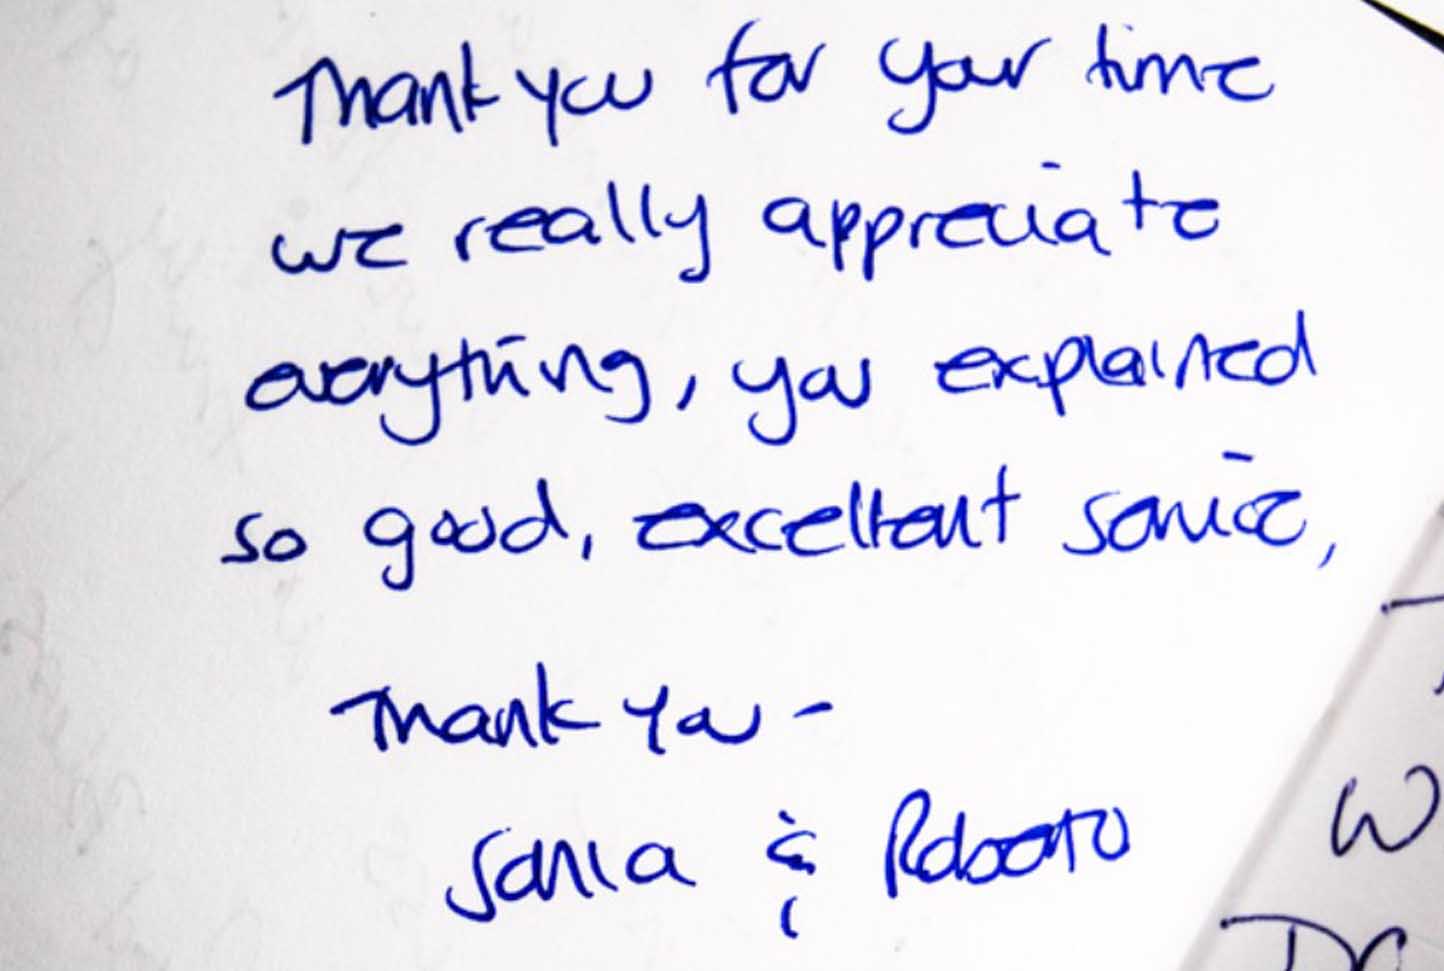 Thank you for your time
we really appreciate
everything, you explained
so good, excellent service,
Thank you -
Sonia & Roberto
W